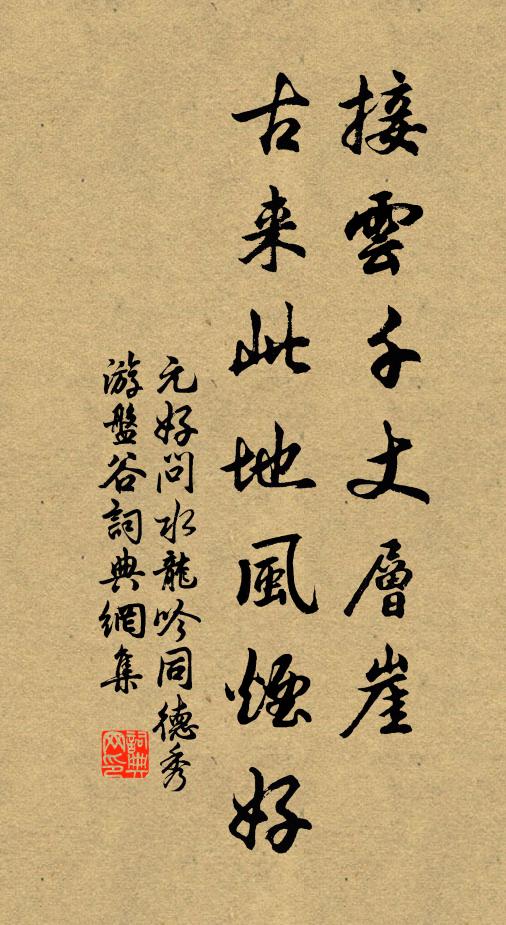 接雲千丈層崖
古来此地風煙好
元好問水龍吟同德秀
游盤谷詞典網集
詞典
网印